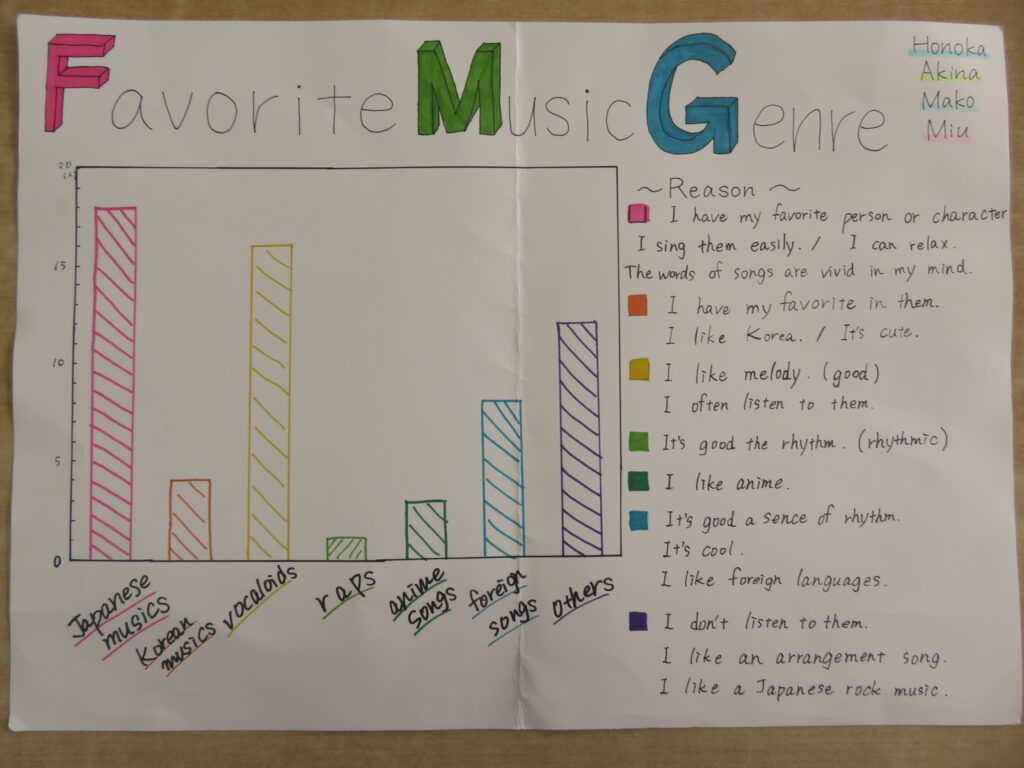 Favorite Music Genre
Honoka
Akina
Mako
Miu
20
(人)
15
10
5
0
Japanese
musics
Korean
musics
vocaloids
raps
anime
songs
foreign
songs
others
~Reason~
I have my favorite person or character
I sing them easily. / I can relax.
The words of songs are vivid in my mind.
I have my favorite in them.
I like Korea. / It's cute.
I like melody. (good)
I often listen to them.
It's good the rhythm. (rhythmic)
I like anime.
It's good a sence of rhythm.
It's cool.
I like foreign languages.
I don't listen to them.
I like an arrangement song.
I like a Japanese rock music.